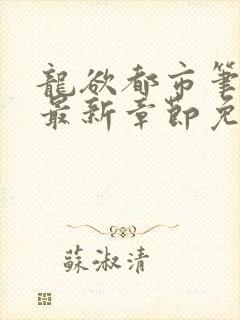 龍欲都市筆
最新章節免
蘇淑清